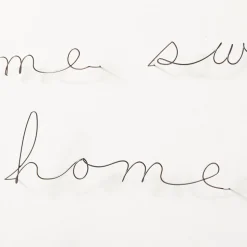 me sw
home